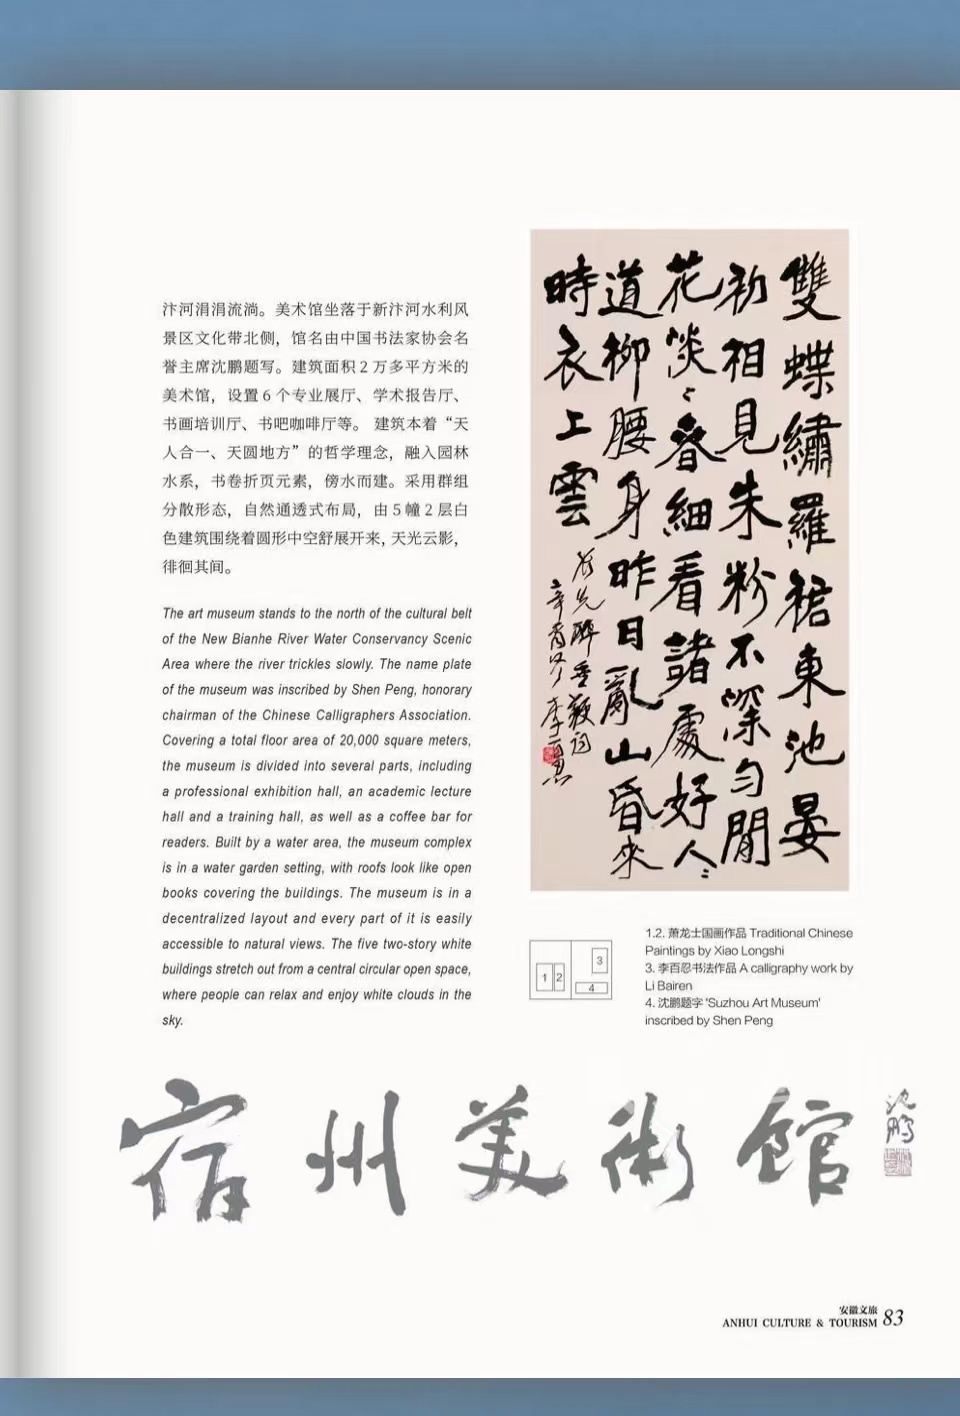 汴河涓涓流淌。美术馆坐落于新汴河水利风
景区文化带北侧，馆名由中国书法家协会名
誉主席沈鹏题写。建筑面积 2 万多平方米的
美术馆，设置 6 个专业展厅、学术报告厅、
书画培训厅、书吧咖啡厅等。 建筑本着“天
人合一、天圆地方”的哲学理念，融入园林
水系，书卷折页元素，傍水而建。采用群组
分散形态，自然通透式布局，由 5 幢 2 层白
色建筑围绕着圆形中空舒展开来，天光云影，
徘徊其间。
The art museum stands to the north of the cultural belt
of the New Bianhe River Water Conservancy Scenic
Area where the river trickles slowly. The name plate
of the museum was inscribed by Shen Peng, honorary
chairman of the Chinese Calligraphers Association.
Covering a total floor area of 20,000 square meters,
the museum is divided into several parts, including
a professional exhibition hall, an academic lecture
hall and a training hall, as well as a coffee bar for
readers. Built by a water area, the museum complex
is in a water garden setting, with roofs look like open
books covering the buildings. The museum is in a
decentralized layout and every part of it is easily
accessible to natural views. The five two-story white
buildings stretch out from a central circular open space,
where people can relax and enjoy white clouds in the
sky.
雙蝶繡羅裙東池晏
初相見朱粉不深勻閒
花淡々春細看諸處好人々
道柳腰身昨日亂山昏來
時衣上雲
張先醉垂鞭詞
李百忍
1 2 3 4
1.2. 萧龙士国画作品 Traditional Chinese
Paintings by Xiao Longshi
3. 李百忍书法作品 A calligraphy work by
Li Bairen
4. 沈鹏题字 'Suzhou Art Museum'
inscribed by Shen Peng
宿州美術馆
沈鹏
安徽文旅
ANHUI CULTURE & TOURISM 83